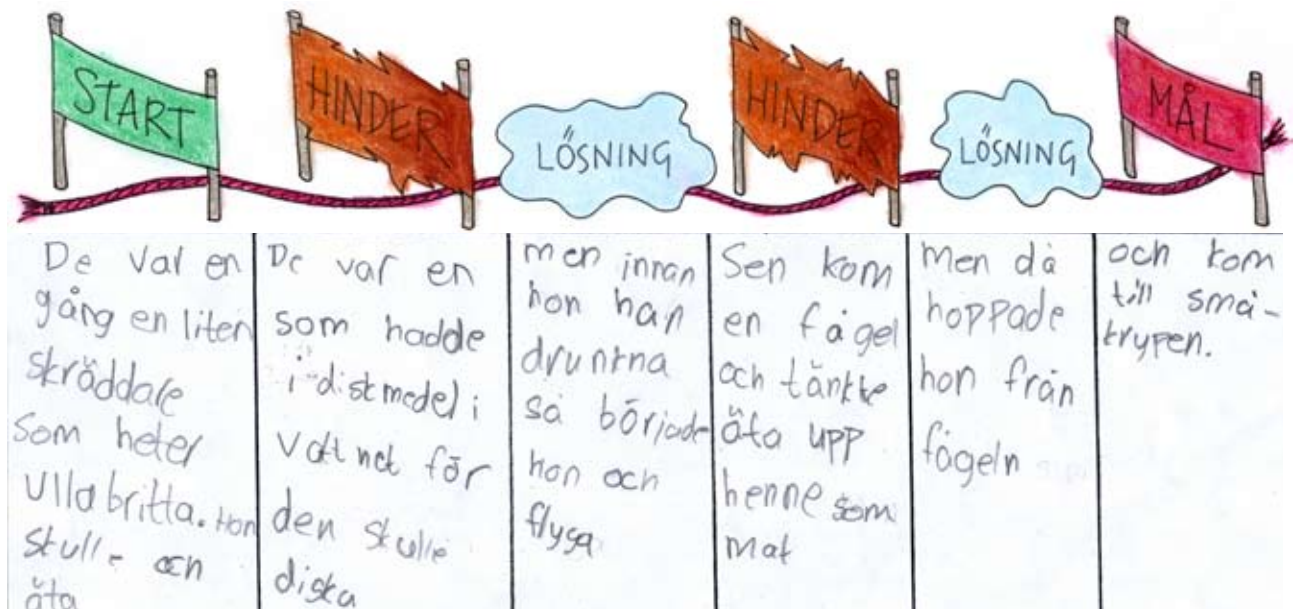 START
HINDER
LÖSNING
HINDER
LÖSNING
MÅL
De var en
gång en liten
skräddare
som heter
Ulla britta. Hon
skulle och
äta
De var en
som hadde
i diskmedel i
vattnet för
den skulle
diska
men innan
hon han
drunkna
så började
hon och
flyga
Sen kom
en fågel
och tänkte
äta upp
henne som
mat
men då
hoppade
hon från
fågeln
och kom
till små-
krypen.